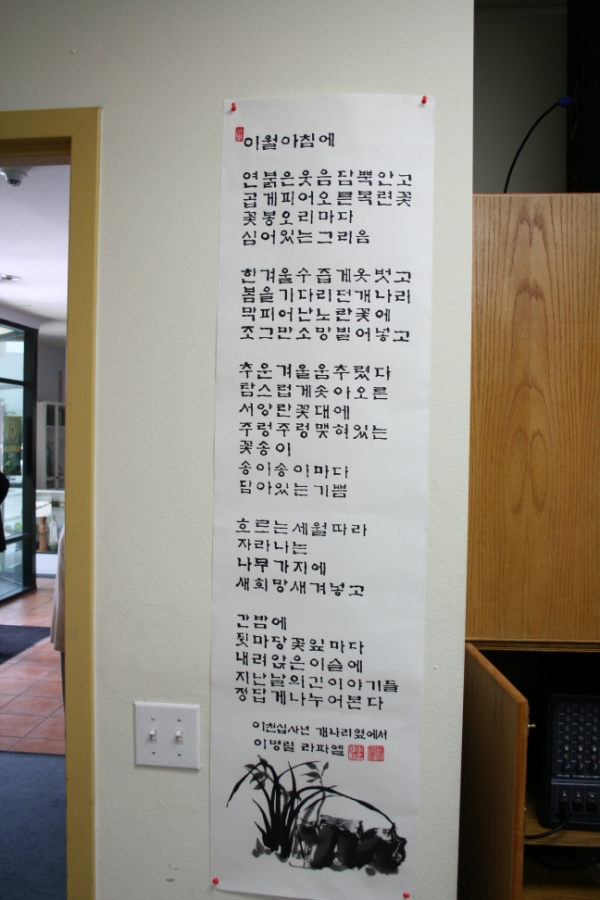 이월아침에
연붉은웃음담뿍안고
곱게피어오른목련꽃
꽃봉오리마다
심어있는그리움
한겨울수줍게옷벗고
봄을기다리던개나리
막피어난노란꽃에
조그만소망빌어넣고
추운겨울움추렸다
탐스럽게솟아오른
서양란꽃대에
주렁주렁맺혀있는
꽃송이
송이송이마다
담아있는기쁨
흐르는세월따라
자라나는
나무가지에
새희망새겨넣고
간밤에
뒷마당꽃잎마다
내려앉은이슬에
지난날의긴이야기들
정답게나누어본다
이천십사년 개나리옆에서
이병릴 라파엘